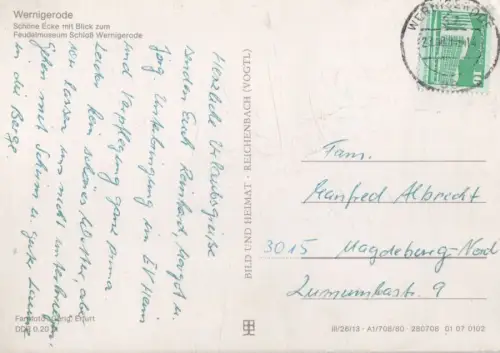 Wernigerode
Schöne Ecke mit Blick zum
Feudalmuseum Schloß Wernigerode
Herzliche Urlaubsgrüße
senden Euch Reinhard, Margot u.
Jörg. Unterbringung im
und Verpflegung ganz prima
Leider kein schönes Wetter, aber
wir lassen uns nicht unterkriegen.
Gehen mit Schirm u. guter Laune
in die Berge.
Erfurt
DDR 0,20
BILD UND HEIMAT · REICHENBACH (VOGTL)
WERNIGERODE
10
Fam.
Manfred Albrecht
3015 Magdeburg-Nord
9
III/26/13 · A1/708/80 · 280708 01 07 0102